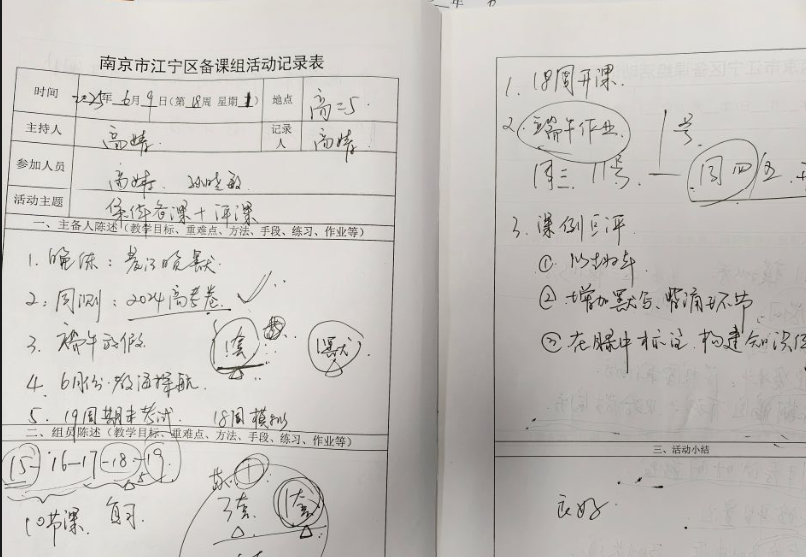 南京市江宁区备课组活动记录表
时间 2025年6月9日(第18周 星期1) 地点 高二5.
主持人 高婧 记录人 高婧.
参加人员 高婧.
活动主题 集体备课+评课
一、主备人陈述(教学目标、重难点、方法、手段、练习、作业等)
1. 晚练:
2. 周测:2024高考卷
3. 端午放假 1套 1默
4. 6月份
5. 19周期末考试. 18周模拟
二、组员陈述(教学目标、重难点、方法、手段、练习、作业等)
15- 16-17-18-19.
10节课. 复习. 3套
1. 18周开课.
2. 端午作业. 1号.
周三 11号. — 周四
3. 课例互评.
①
② 增加默写、背诵环节
③ 在 中标注,构建知识
三、活动小结
良好.